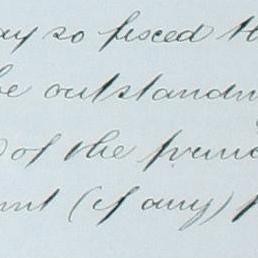 ay so fixed th
be outstandin
of the princ
nt (if any) p